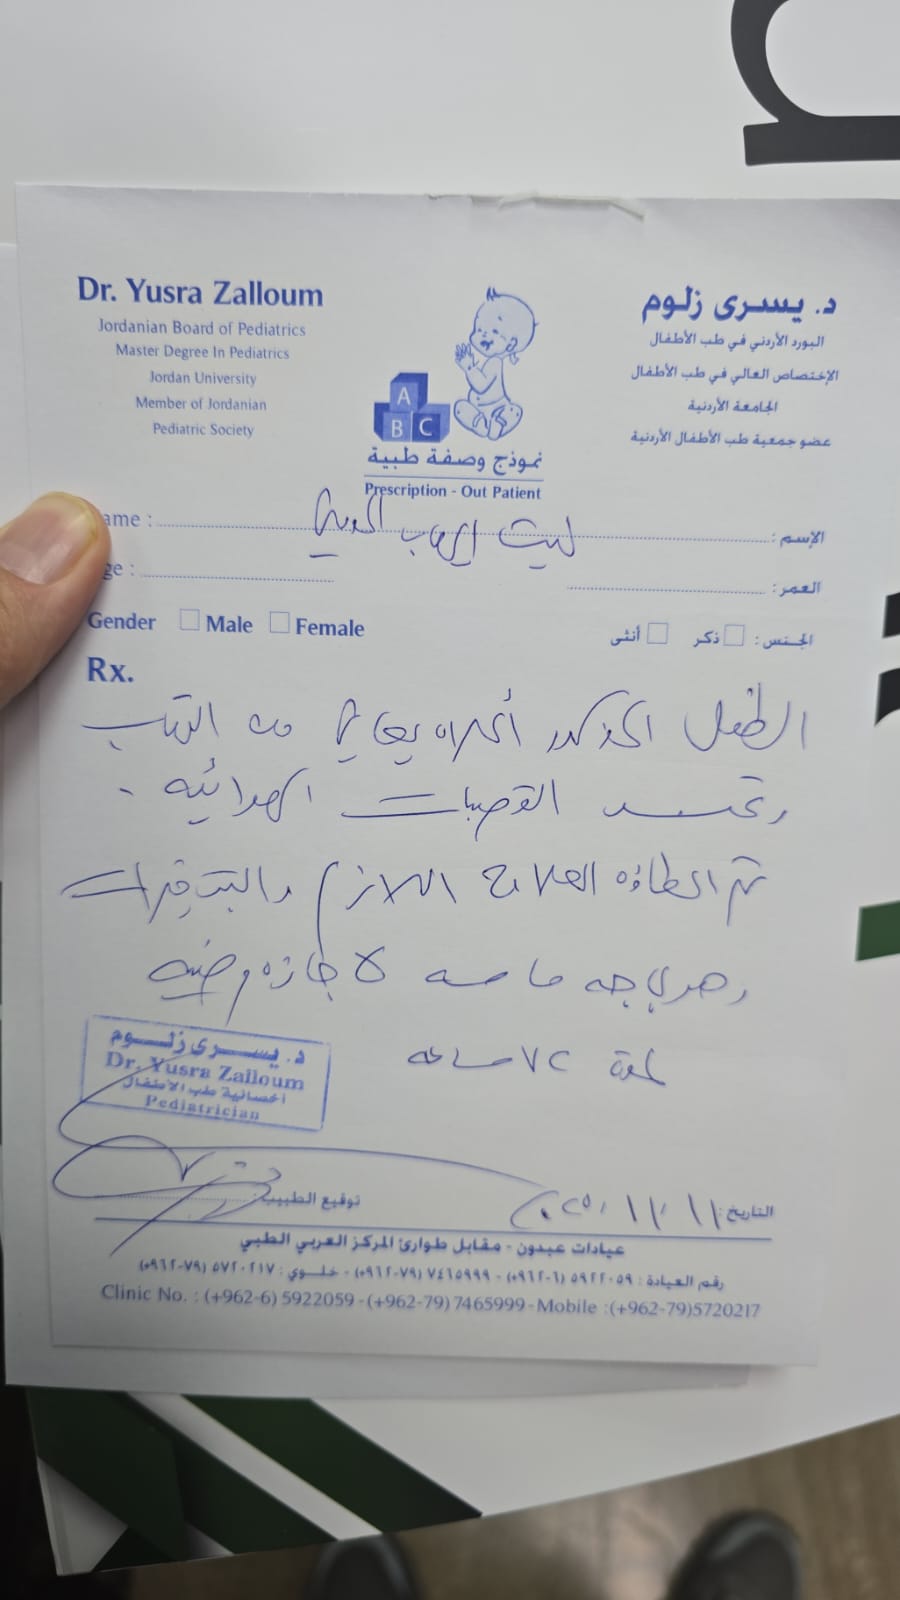 Dr. Yusra Zalloum
Jordanian Board of Pediatrics
Master Degree In Pediatrics
Jordan University
Member of Jordanian
Pediatric Society
د. يسرى زلوم
البورد الأردني في طب الأطفال
الإختصاص العالي في طب الأطفال
الجامعة الأردنية
عضو جمعية طب الأطفال الأردنية
A
B C
نموذج وصفة طبية
Prescription - Out Patient
ame : ليث إيهاب الإسم :
ge : العمر :
Gender Male Female الجنس : ذكر أنثى
Rx.
الطفل المذكور أعلاه يعاني من التهاب
وتحسس القصبات الهوائية .
تم اعطاؤه العلاج اللازم والتبخيرات
وهو بحاجة ماسة لاجازة مرضية
لمدة ٧٢ ساعة
د. يسرى زلوم
Dr. Yusra Zalloum
أخصائية طب الأطفال
Pediatrician
التاريخ : ١١ / ١١ / ٢٠٢٥ توقيع الطبيب :
عيادات عبدون - مقابل طوارئ المركز العربي الطبي
رقم العيادة : ٥٩٢٢٠٥٩ (٦-٩٦٢+) - ٧٤٦٥٩٩٩ (٧٩-٩٦٢+) - خلوي : ٥٧٢٠٢١٧ (٧٩-٩٦٢+)
Clinic No. : (+962-6) 5922059 -(+962-79) 7465999 -Mobile :(+962-79)5720217